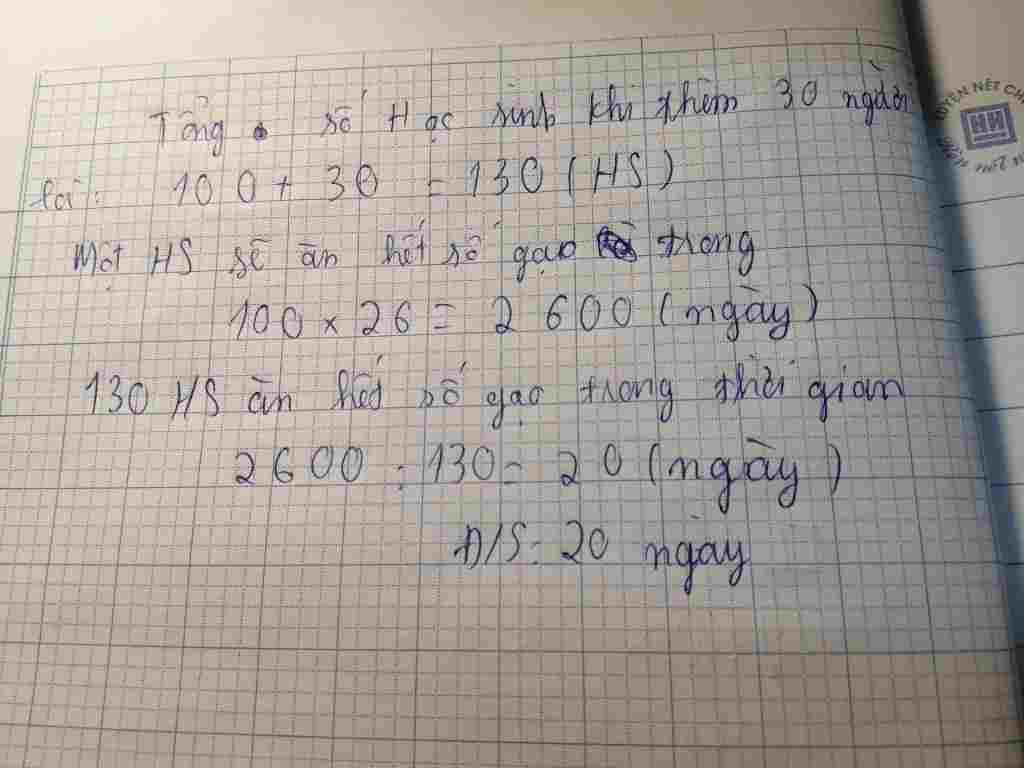 Tổng số Học sinh khi thêm 30 người
là: 100 + 30 = 130 (HS)
Một HS sẽ ăn hết số gạo trong
100 x 26 = 2 600 (ngày)
130 HS ăn hết số gạo trong thời gian
2600 : 130 = 20 (ngày)
Đ/S: 20 ngày
NÉT CH
HH